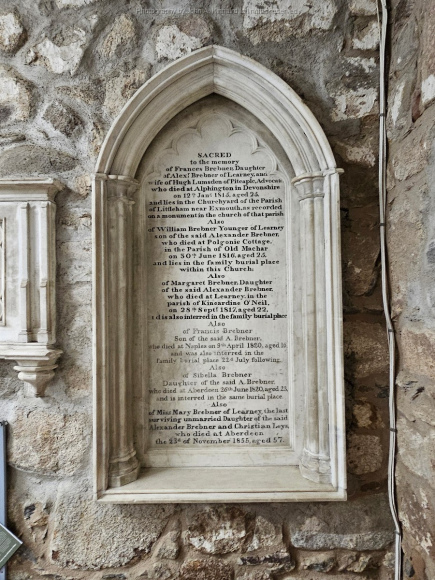 SACRED
to the memory
of Frances Brebner, Daughter
of Alexr Brebner of Learney, and
wife of Hugh Lumsden of Pitcaple, Advocate
who died at Alphington in Devonshire
on 12th Jany 1815, aged 25.
and lies in the Churchyard of the Parish
of Littleham near Exmouth, as recorded
on a monument in the church of that parish
Also
of William Brebner Younger of Learney
son of the said Alexander Brebner,
who died at Polgonie Cottage,
in the Parish of Old Machar
on 30th June 1816, aged 23.
and lies in the family burial place
within this Church.
Also
of Margaret Brebner, Daughter
of the said Alexander Brebner,
who died at Learney, in the
parish of Kincardine O'Neil,
on 28th Septr 1817, aged 22.
is also interred in the family burial place
Also
of Francis Brebner
Son of the said A. Brebner,
who died at Naples on 9th April 1820, aged
and was also interred in the
family burial place 22nd July following.
Also
of Sibella Brebner
Daughter of the said A. Brebner.
who died at Aberdeen 26th June 1820, aged 23,
and is interred in the same burial place
Also
of Miss Mary Brebner of Learney the last
surviving unmarried Daughter of the said
Alexander Brebner and Christian Leys,
who died at Aberdeen
the 23rd of November 1855, aged 57.